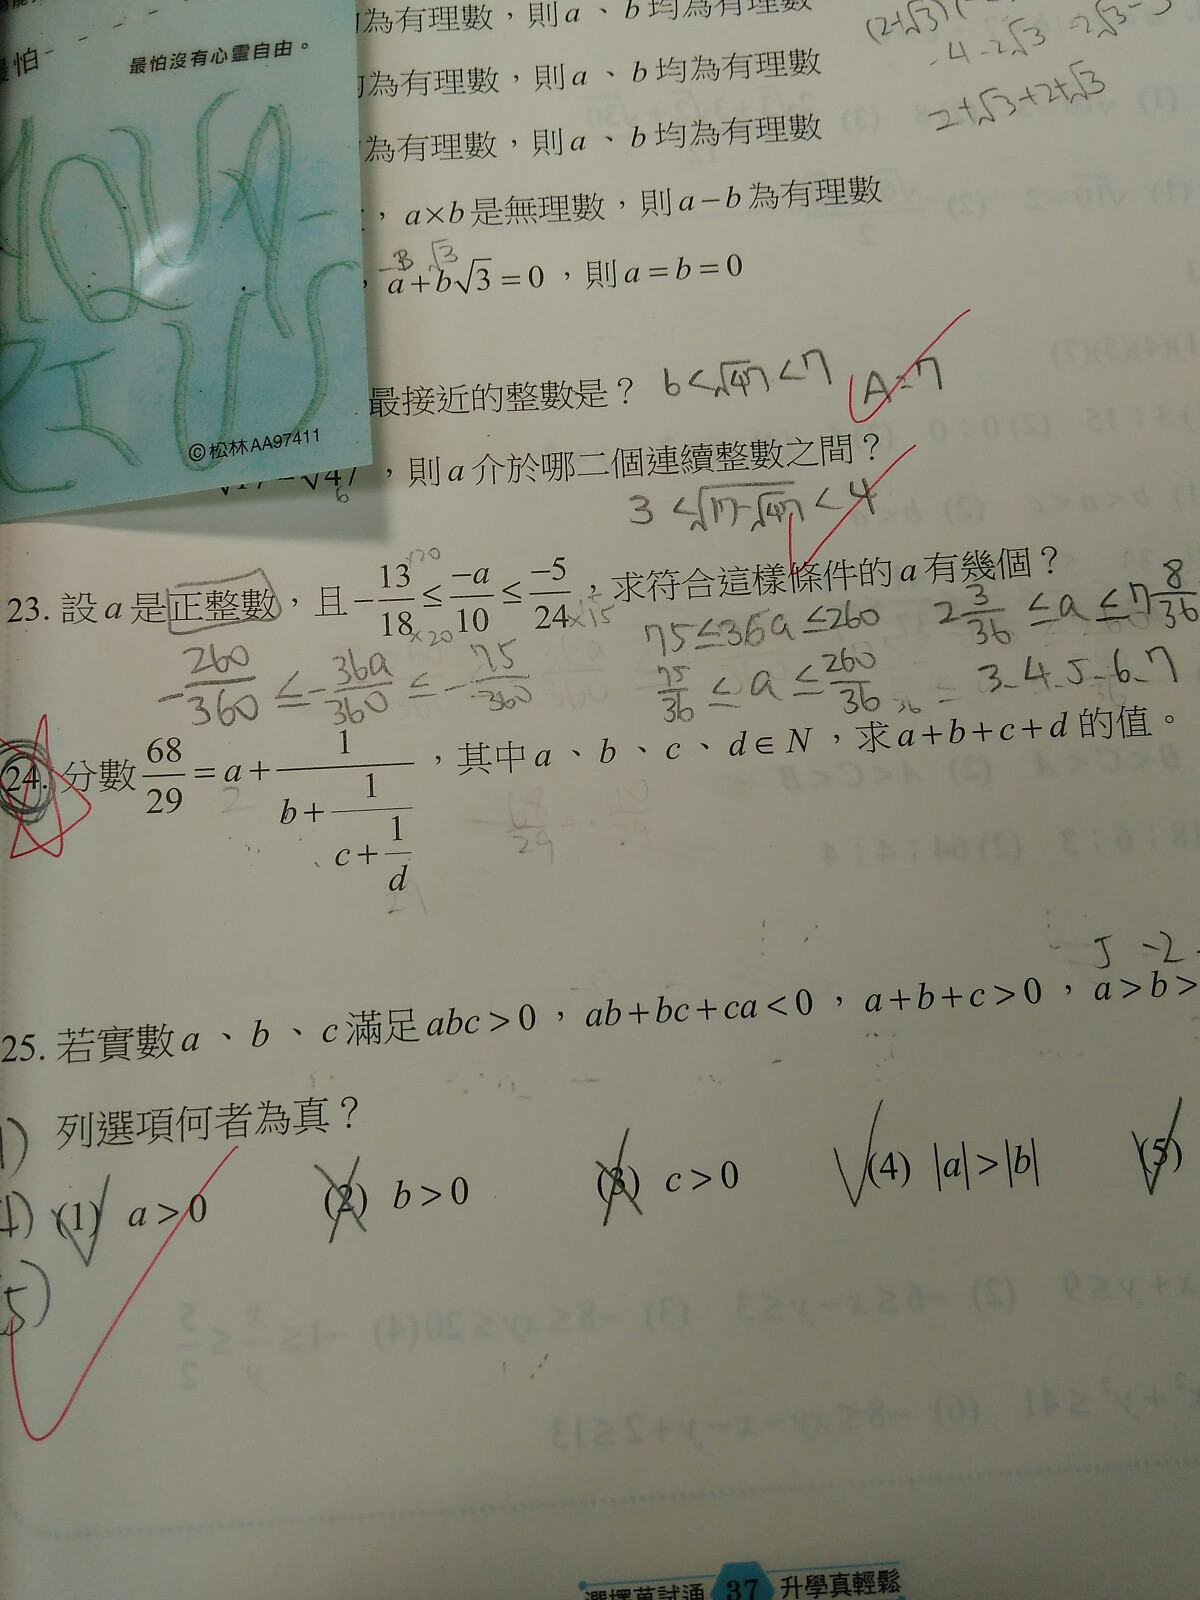 均為有理數，則a、b均為有理數
最怕
最怕沒有心靈自由。
均為有理數，則a、b均為有理數
為有理數，則a、b均為有理數
-4-2√3-2√3-3
2+√3+2+√3
，a×b是無理數，則a-b為有理數
-3 √3
，a+b√3=0，則a=b=0
最接近的整數是？ 6<√47<7 A=7
©松林AA97411
√17-√47，則a介於哪二個連續整數之間？
6
3<√17-√47<4
×20
23. 設a是正整數，且-13/18≤-a/10≤-5/24，求符合這樣條件的a有幾個？
×20 ×15
75≤36a≤260 2 3/36≤a≤7 8/36
-260/360≤-36a/360≤-75/360 75/36≤a≤260/36 3-4-5-6-7
24. 分數68/29=a+1/(b+1/(c+1/d))，其中a、b、c、d∈N，求a+b+c+d的值。
2
68/29
5 -2
25. 若實數a、b、c滿足abc>0，ab+bc+ca<0，a+b+c>0，a>b>
列選項何者為真？
1)
4) (1) a>0 (2) b>0 (3) c>0 (4) |a|>|b| (5)
5)
選擇萬試通 37 升學真輕鬆